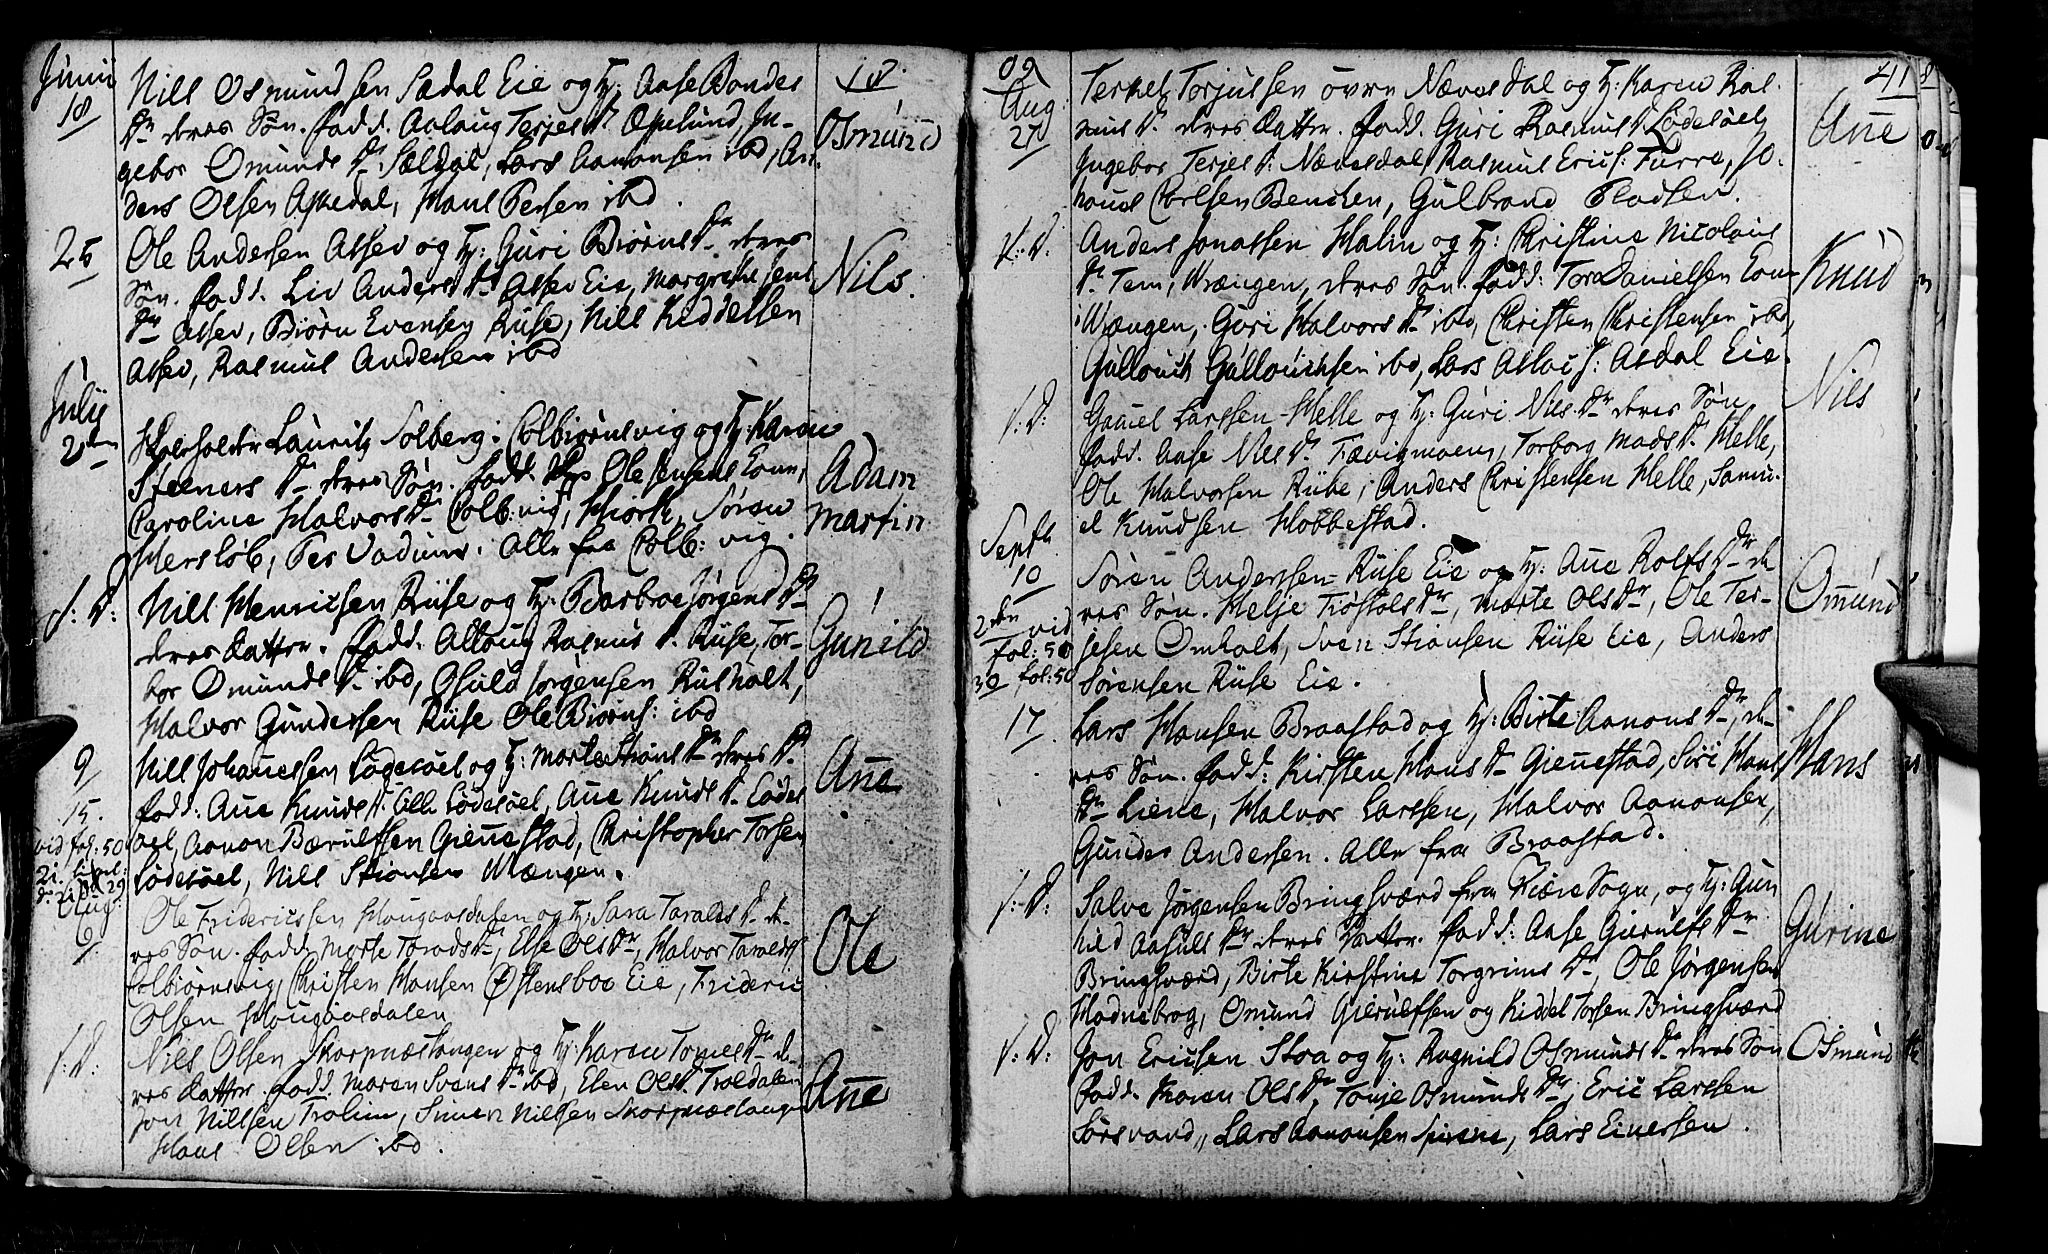 Junii
18
Nils Osmundsen Sædal Eie og H: Aase Bondes
Dr deres Søn. fadd. Aslaug Terjes Dr Opelund, In-
gebor Omunds Dr Sældal, Lars Aanonsen ibd, An-
ders Olsen Askedal, Hans Persen ibd.
18.
Osmund
25
Ole Andersen Assev og H: Guri Biørns Dr deres
Søn. fadd. Liv Anders Dr Assev Eie, Margrethe Jens
Dr Assev, Biørn Evensen Ruse, Nils Kiddelsen
Assev, Rasmus Andersen ibd
Nils.
Julii
2den
Lauritz Solberg. Colbiørnsvig og H: Karen
Steeners Dr deres Søn. fadd. Ole Jensens Kone,
Caroline Halvors Dr Colb:vig, Hiorth, Søren
Hersløb, Per Vadum. Alle fra Colb: vig.
Adam
Martin
S: D:
Nils Henricsen Ruse og H: Barbroe Jørgens Dr
deres Datter. fadd. Aslaug Rasmus D. Ruse, Tor-
bor Omunds Dr ibd, Osuld Jørgensen Rusholt,
Halvor Gundersen Ruse Ole Biørns: ibd
Gunild
9
Nils Johannessen Lødesøel og H: Marte Stians Dr deres D.
fadd: Ane Knuds D. Alle Lødesøel, Ane Knuds D. Lødes
øel, Aanon Bærulfsen Giennestad, Christopher Torsen
Lødesøel, Nils Stionsen Wrængen.
Ane
15.
vid fol: 50
Aug:
6
Ole Fridericssen Hougaasdalen og H: Sara Taralds D. de-
res Søn. fadd. Marte Toralds Dr, Else Ols Dr, Halvor Taraldss
Colbiørnsvig, Christen Hansen Østensboe Eie, Frideric
Olsen Hougaasdalen
Ole
S: D:
Nils Olsen Skarpnæstangen og H: Karen Tomes Dr de-
res Datter. fadd. Maren Svens Dr ibd, Elen Ols D. Troldalen
Jon Nillsen Trolim, Simen Nilsen Skarpnæstangen
Hans Olsen ibd.
Ane
09
Aug:
27
Terkel Torjussen øvre Nævesdal og H: Karen Ras-
mus D. deres Datter. fadd. Guri Rasmus D. Lødesøel,
Ingebor Terjes D. Nævesdal, Rasmus Erics: Furre, Jo-
hannes Carlsen Benchen, Gulbrand Pladsen.
41
Ane
S: D:
Anders Jonassen Malin og H: Christine Nicolais
Dr Tem, Wrængen, deres Søn. fadd: Tore Danielsen Kone
Wrængen, Guri Halvors Dr ibd, Christen Christensen ibd,
Gullouch Gullouchsen ibd, Lars Aslacs: Asdal Eie.
Knud
S: D:
Gamel Larssen Helle og H: Guri Nils Dr deres Søn
fadd. Aase Nils Dr Fævigmoen, Torborg Mads D. Helle,
Ole Halvorsen Rube, Anders Christensen Helle, Samu-
el Knudsen Hobbestad.
Nils
Septb
10
Søren Anderssen Ruse Eie og H: Ane Rolfs Dr de
res Søn. Helje Trøstols Dr, Marte Ols Dr, Ole Ter-
jesen Omholt, Sven Stionsen Ruse Eie, Anders
Sørensen Ruse Eie.
Omund
2den vid
fol: 50
30 fol: 50
17
Lars Hansen Braastad og H: Birte Aanons Dr, de-
res Søn. fadd: Kirsten Hans Dr Giennestad, Siri Hans
Dr Liene, Halvor Larssen, Halvor Aanonsen,
Gunder Andersen. Alle fra Braastad.
Hans
S: D:
Salve Jørgensen Bringsværd fra Fiære Sogn, og H: Gun
hild Aasuls Dr deres Datter. fadd: Aase Gierulfs Dr
Bringsværd, Birte Kirstine Torgrims Dr, Ole Jørgensen
Hadnebrog, Omund Gierulfsen og Kiddel Torsen Bringsværd
Gurine
S: D:
Jon Ericsen Stoa og H: Ragnild Osmunds Dr deres Søn
fadd. Karen Ols Dr, Tonje Osmunds Dr, Eric Larssen
Sørsvand, Lars Aanonsen Spirene, Lars Einersen.
Osmund